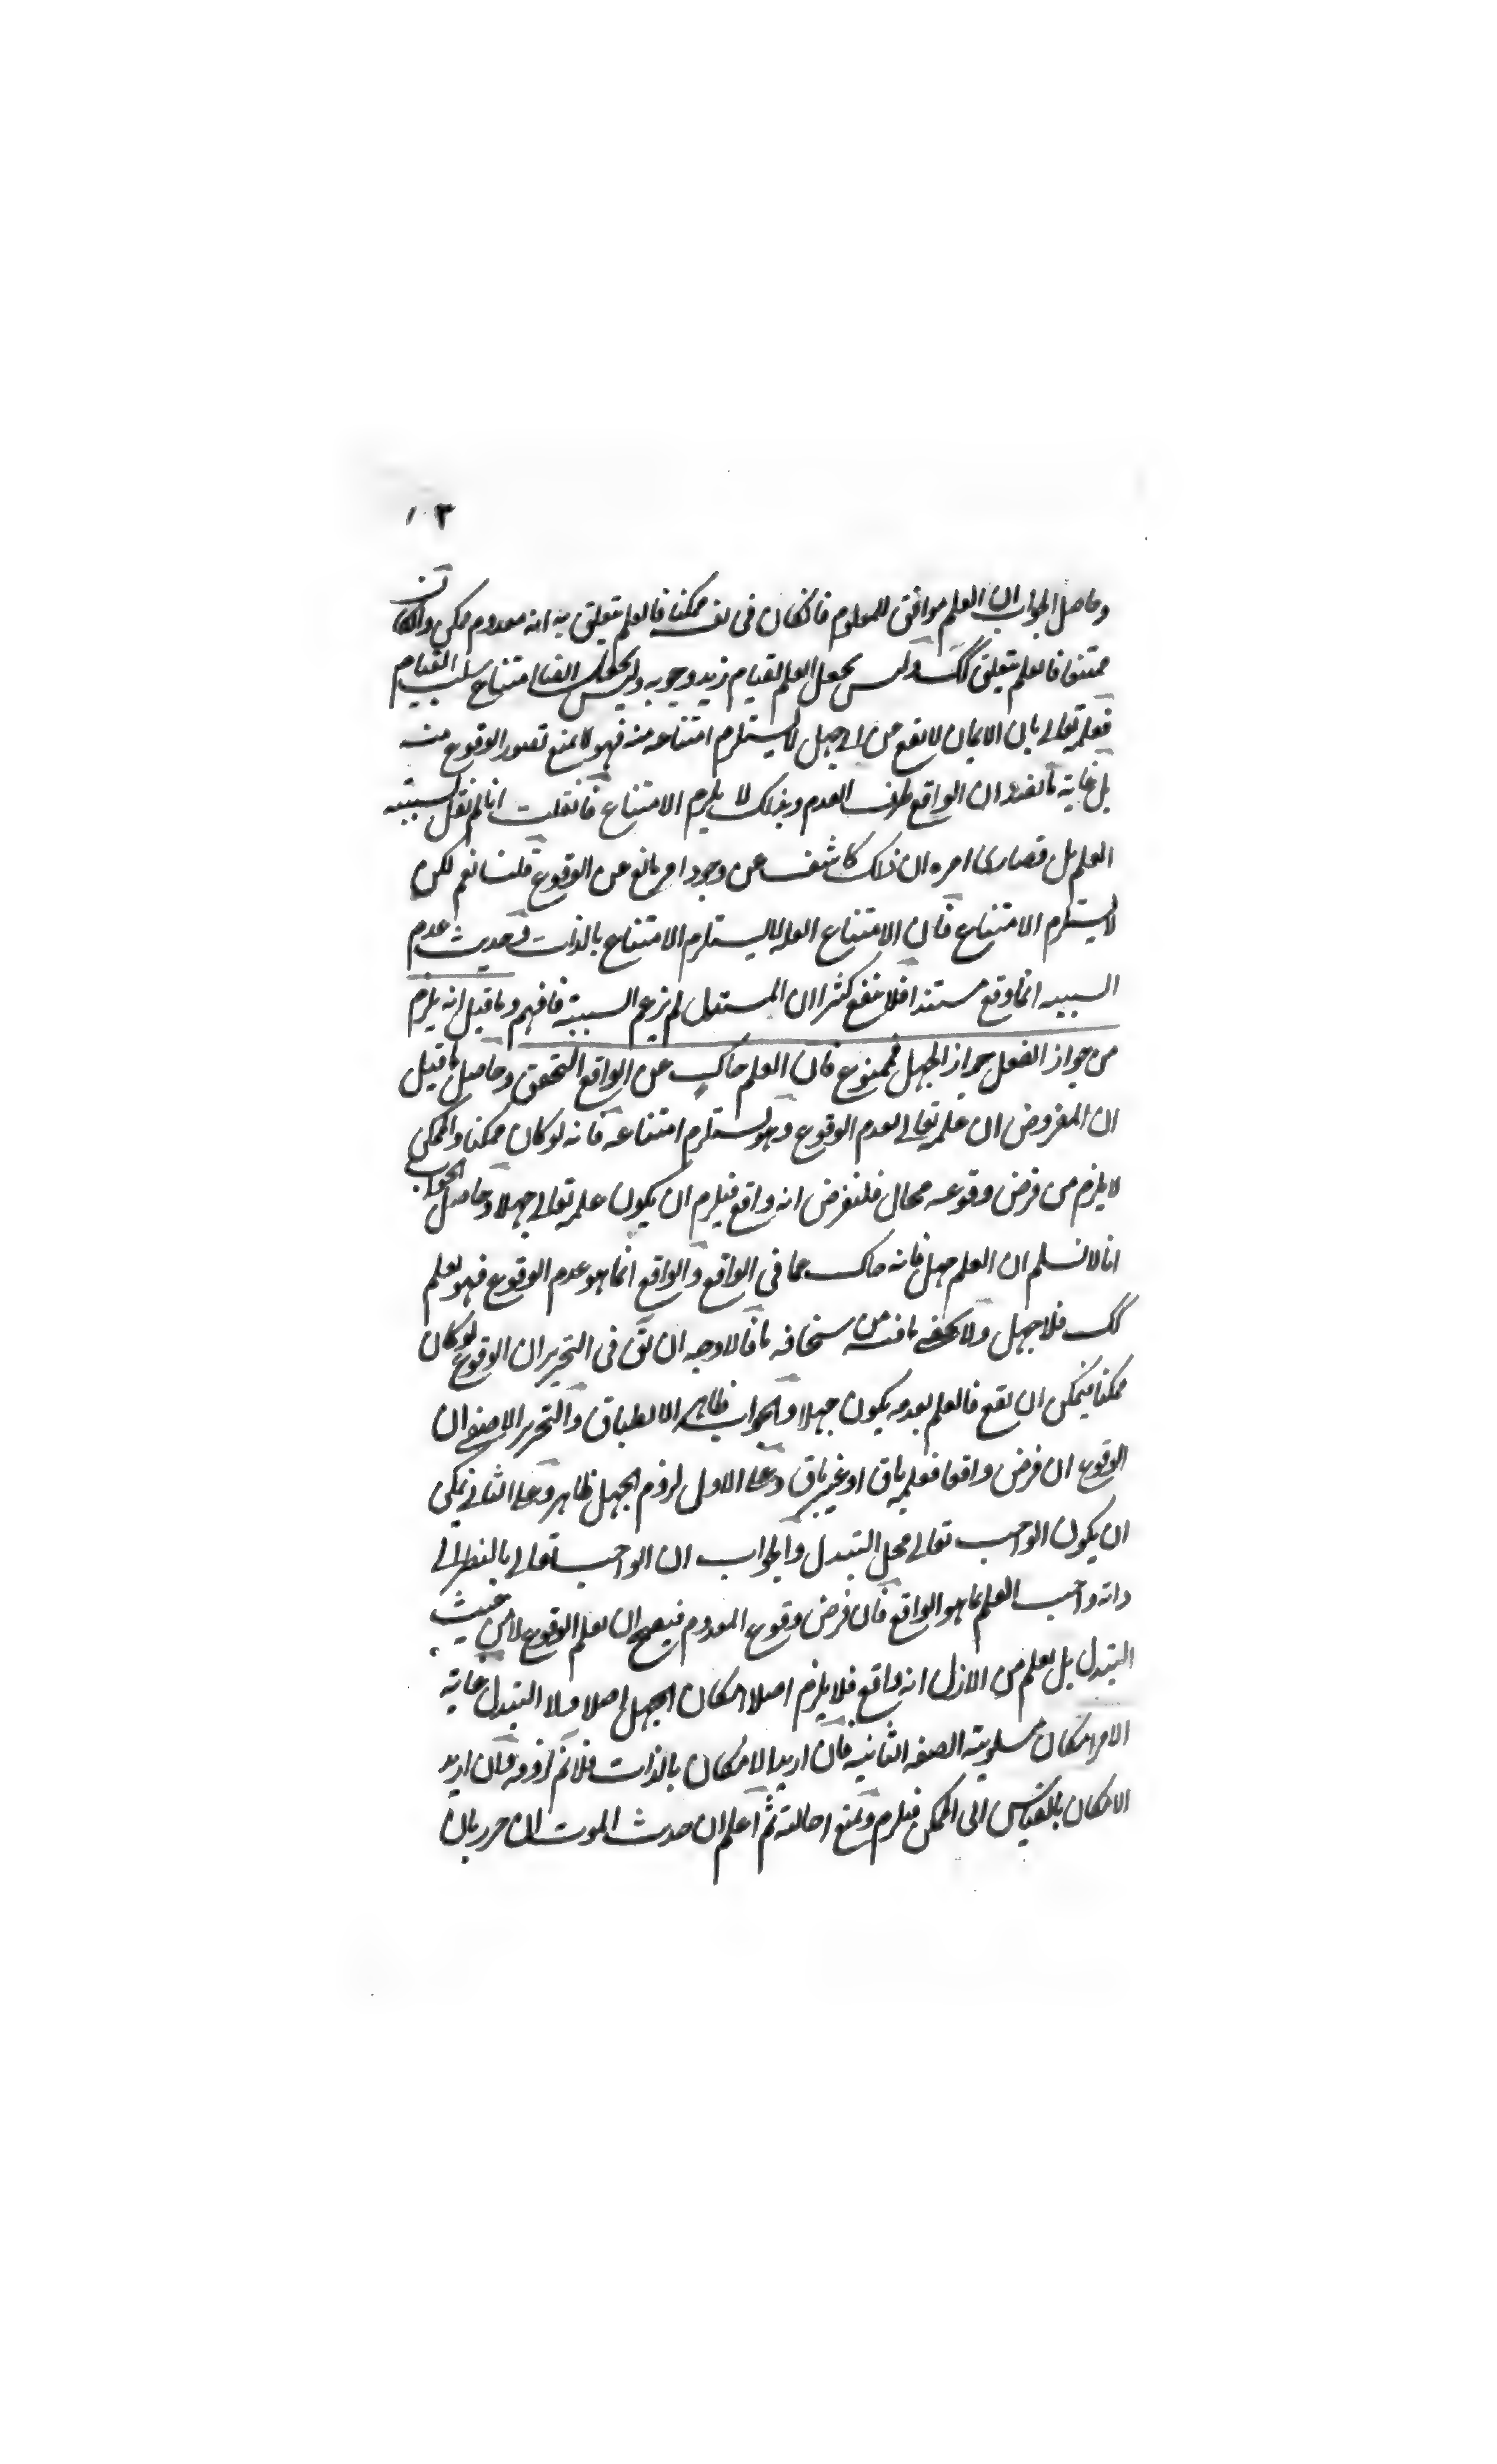 ١٠٣
وحاصل الجواب ان العلم موافق للمعلوم فانكان فى نفسه ممكنا فالعلم يتعلق به انه معدوم ممكن وانكان
ممتنعا فالعلم يتعلق كك وليس يجعل العلم القيام زيد وجوبه وليس يجعل العلم القيام امتناع سلب القيام
فعلمه تعالى بان الايمان لا يقع من ابى جهل لا يستلزم امتناعه منه فهو لا يمنع تصور الوقوع منه
بل غاية ان الواقع طرف العدم وبذلك لا يلزم الامتناع فانقلت انا لم نقل بسببية
العلم بل قصارى امره ان ذلك كاشف عن وجود امر مانع عن الوقوع قلنا نعم لكن
لا يستلزم الامتناع فان الامتناع لا يستلزم الامتناع بالذات فحديث عدم
السببية انما وقع مستندا فلا ينفع كثيرا ان المستدل لم يزعم السببية فافهم وما قيل انه يلزم
من جواز الفعل جواز الجهل فممنوع فان العلم حاك عن الواقع المتحقق وحاصل ما قيل
ان المفروض ان علمه تعالى بعدم الوقوع وهو يستلزم امتناعه فانه لو كان ممكنا والممكن
لا يلزم من فرض وقوعه محال فلنفرض انه واقع فيلزم ان يكون علمه تعالى جهلا وحاصل الجواب
انا لا نسلم ان العلم جهل فانه حاك عما فى الواقع والواقع انما هو عدم الوقوع فهو يعلم
كك فلا جهل ولا يخفى ما فيه من سخافه ما فالاوجه ان يق فى التحرير ان الوقوع لو كان
ممكنا فيمكن ان يقع فالعلم بعدمه يكون جهلا والجواب ظاهر الانطباق والتحرير الاصفى ان
الوقوع ان فرض واقعا فعلمه باق او غير باق وعلى الاول لزوم الجهل ظاهر وعلى الثانى يمكن
ان يكون الواجب تعالى محل التبدل والجواب ان الواجب تعالى بالنظر الى
ذاته واجب العلم بما هو الواقع فان فرض وقوع المعدوم فيصح ان يعلم الوقوع لا من حيث
التبدل بل يعلم من الازل انه واقع فلا يلزم اصلا امكان الجهل اصلا ولا التبدل غاية
الامر امكان مسلوبية الصفة الثانية فان اريد الامكان بالذات فلا نم لزومه وان اريد
الامكان بالقياس الى الممكن فيلزم ونمنع احالته ثم اعلم ان حديث الموت ان حرر بان